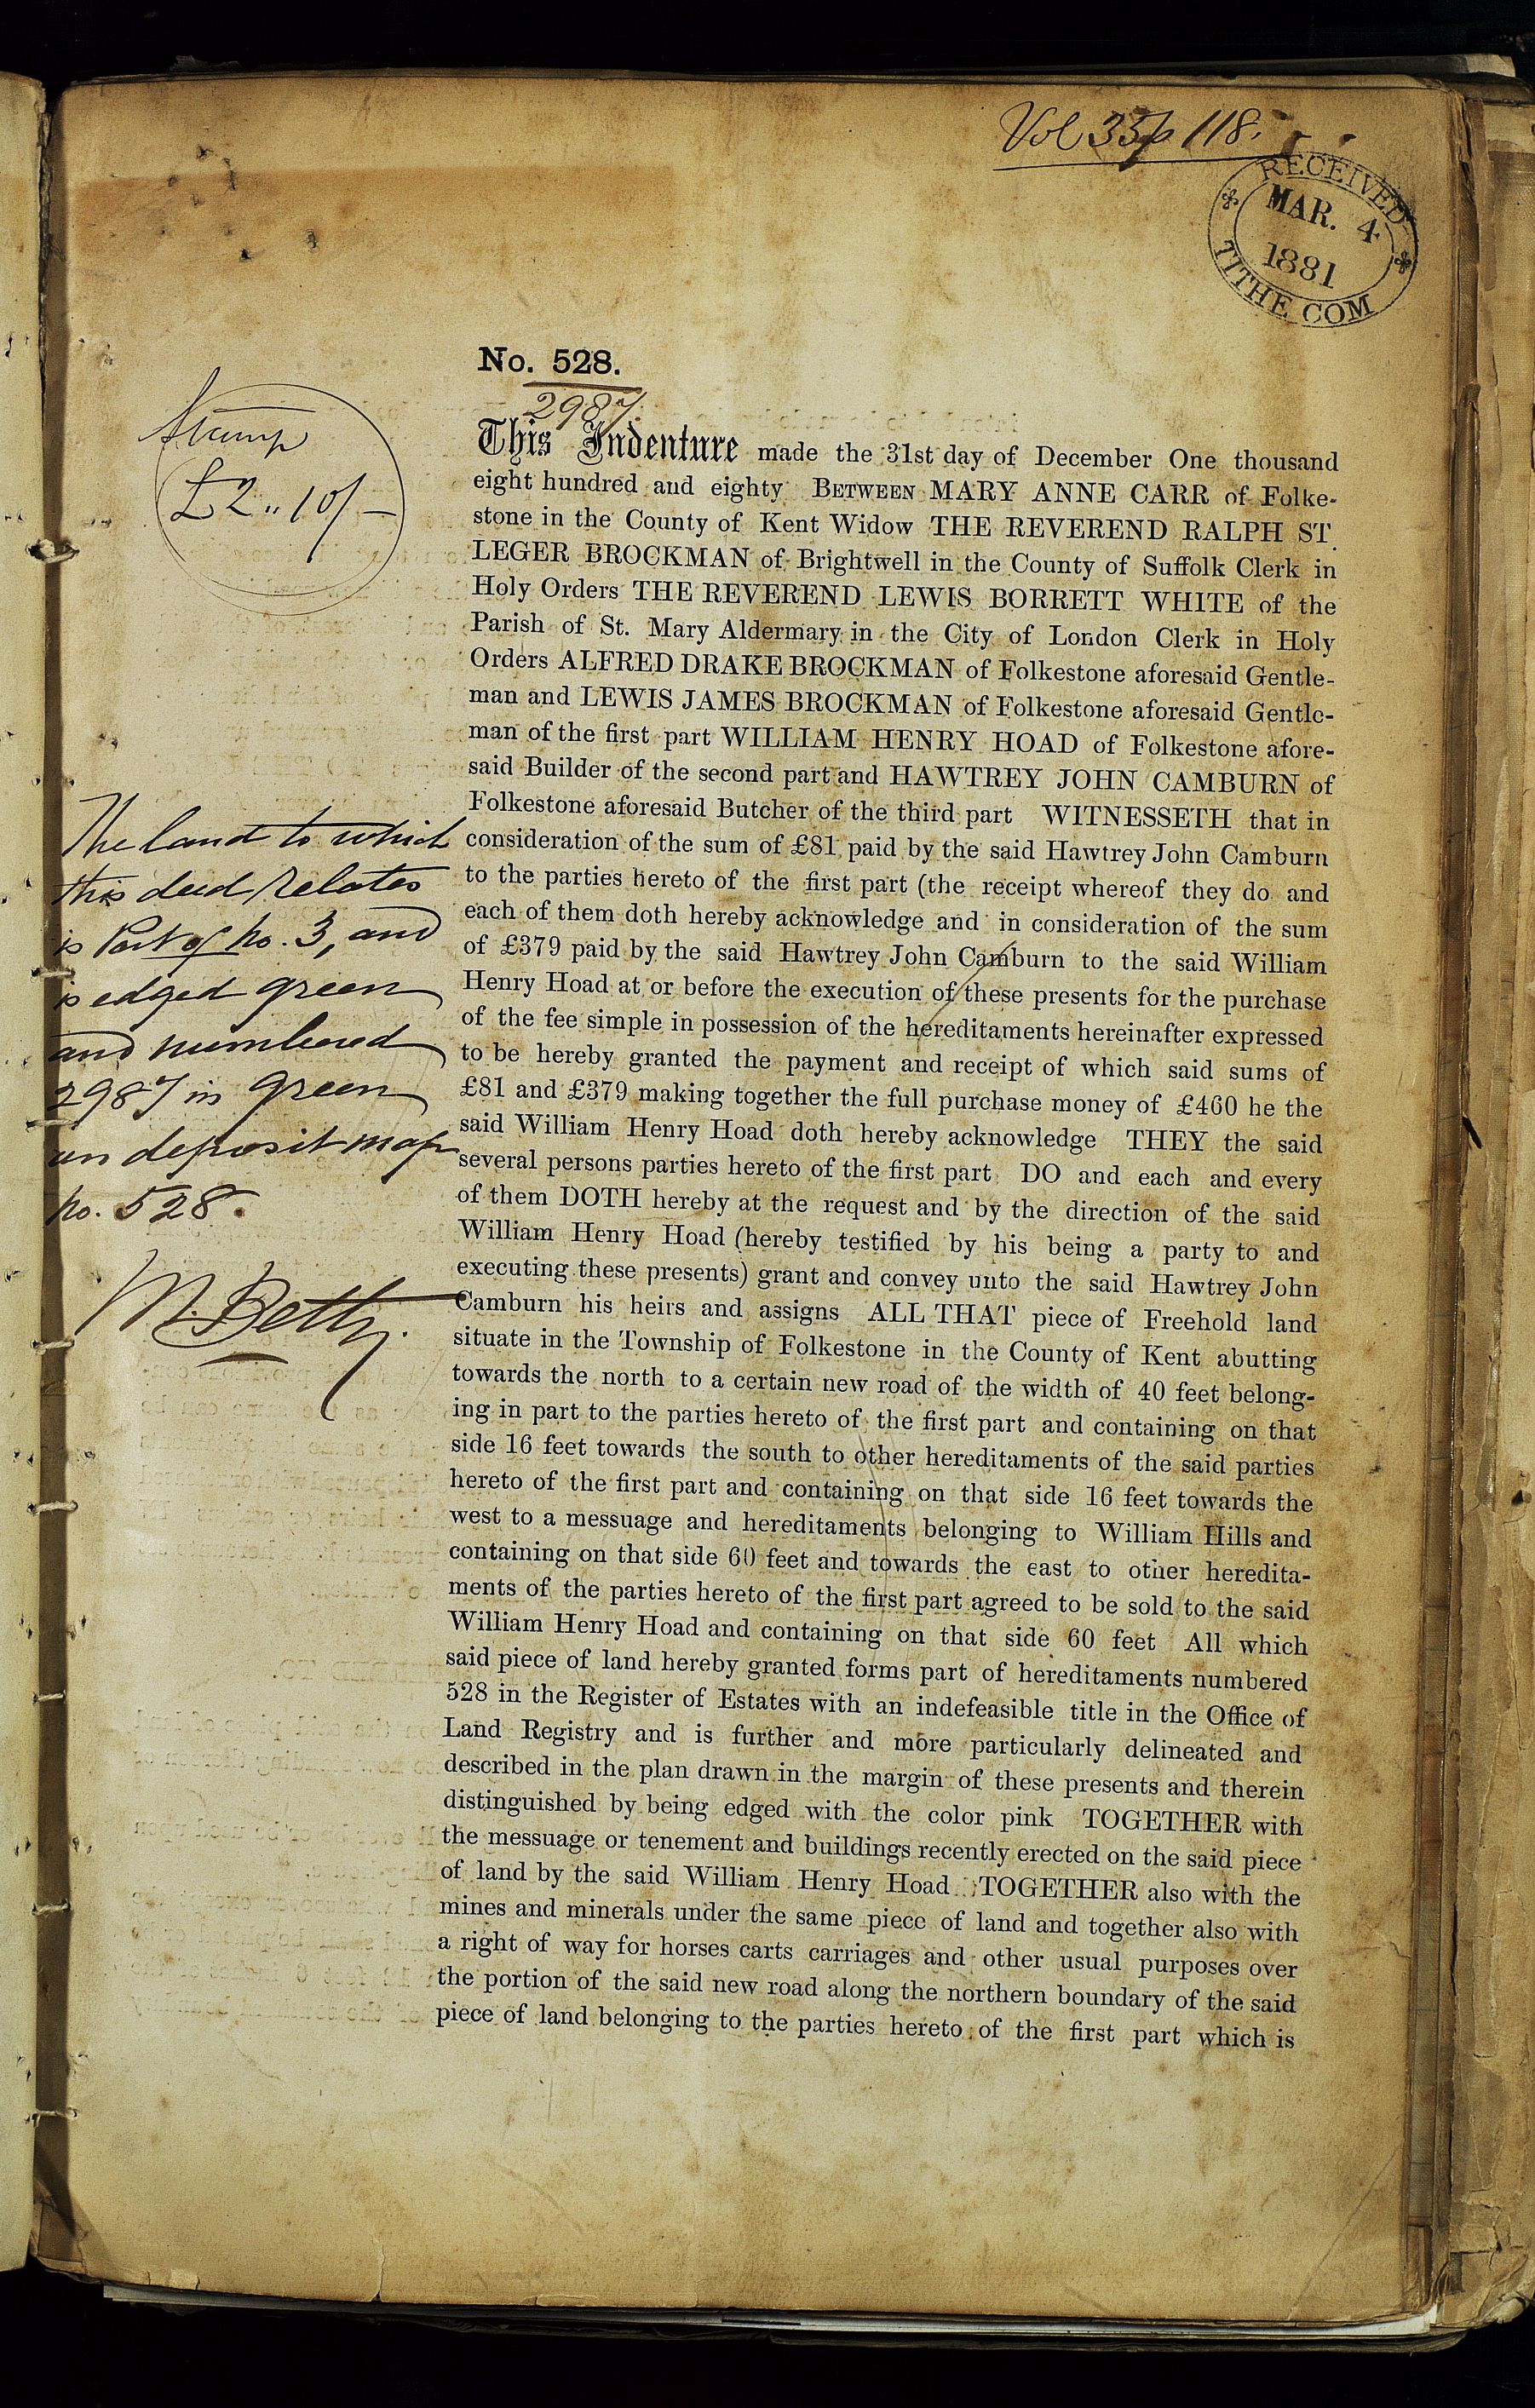 Vol 35 p 118.
RECEIVED
MAR. 4
1881
TITHE COM
No. 528.
2987.
Stamp
£2..10/-
This Indenture made the 31st day of December One thousand
eight hundred and eighty BETWEEN MARY ANNE CARR of Folke-
stone in the County of Kent Widow THE REVEREND RALPH ST.
LEGER BROCKMAN of Brightwell in the County of Suffolk Clerk in
Holy Orders THE REVEREND LEWIS BORRETT WHITE of the
Parish of St. Mary Aldermary in the City of London Clerk in Holy
Orders ALFRED DRAKE BROCKMAN of Folkestone aforesaid Gentle-
man and LEWIS JAMES BROCKMAN of Folkestone aforesaid Gentle-
man of the first part WILLIAM HENRY HOAD of Folkestone afore-
said Builder of the second part and HAWTREY JOHN CAMBURN of
Folkestone aforesaid Butcher of the third part WITNESSETH that in
consideration of the sum of £81 paid by the said Hawtrey John Camburn
to the parties hereto of the first part (the receipt whereof they do and
each of them doth hereby acknowledge and in consideration of the sum
of £379 paid by the said Hawtrey John Camburn to the said William
Henry Hoad at or before the execution of these presents for the purchase
of the fee simple in possession of the hereditaments hereinafter expressed
to be hereby granted the payment and receipt of which said sums of
£81 and £379 making together the full purchase money of £460 he the
said William Henry Hoad doth hereby acknowledge THEY the said
several persons parties hereto of the first part DO and each and every
of them DOTH hereby at the request and by the direction of the said
William Henry Hoad (hereby testified by his being a party to and
executing these presents) grant and convey unto the said Hawtrey John
Camburn his heirs and assigns ALL THAT piece of Freehold land
situate in the Township of Folkestone in the County of Kent abutting
towards the north to a certain new road of the width of 40 feet belong-
ing in part to the parties hereto of the first part and containing on that
side 16 feet towards the south to other hereditaments of the said parties
hereto of the first part and containing on that side 16 feet towards the
west to a messuage and hereditaments belonging to William Hills and
containing on that side 60 feet and towards the east to other heredita-
ments of the parties hereto of the first part agreed to be sold to the said
William Henry Hoad and containing on that side 60 feet All which
said piece of land hereby granted forms part of hereditaments numbered
528 in the Register of Estates with an indefeasible title in the Office of
Land Registry and is further and more particularly delineated and
described in the plan drawn in the margin of these presents and therein
distinguished by being edged with the color pink TOGETHER with
the messuage or tenement and buildings recently erected on the said piece
of land by the said William Henry Hoad TOGETHER also with the
mines and minerals under the same piece of land and together also with
a right of way for horses carts carriages and other usual purposes over
the portion of the said new road along the northern boundary of the said
piece of land belonging to the parties hereto of the first part which is
The land to which
this deed relates
is Part of No. 3, and
is edged green
and numbered
2987 in green
on deposit map
No. 528.